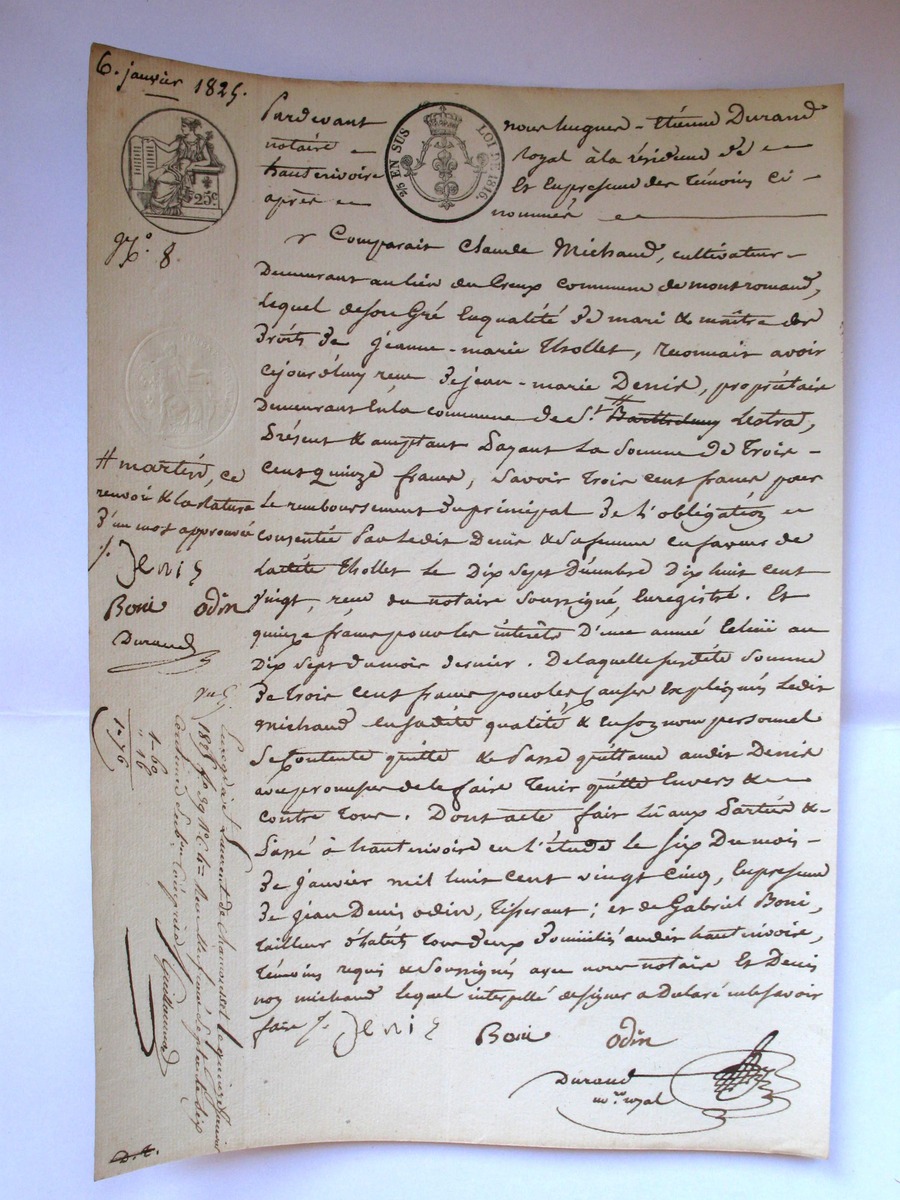 6. janvier 1825.
Pardevant nous hugues-étienne Durand
notaire royal à la résidence de
hauterivoire Et En presence des témoins ci
après nommés
25 EN SUS LOI DE 1816.
25c
No. 8
Comparait Claude Michaud, cultivateur
Demeurant au lieu du Creux commune de montromand,
Lequel de son Gré En qualité de mari & maître des
Droits de jeanne-marie Thollet, reconnait avoir
cejourd'huy reçu de jean-marie Denis, propriétaire
Demeurant En la commune de St. Barthelemy Lestra,
Présent & acceptant Payant La Somme de Trois
cent quinze francs, Savoir trois cent francs pour
Le remboursement du principal de l'obligation
consentie Par Ledit Denis & sa femme en faveur de
Ladite Thollet Le Dix sept Décembre Dix huit cent
Vingt, reçue du notaire Soussigné, Enregistré. Et
quinze francs pour les intérêts D'une année Echue au
Dix sept du mois dernier. De laquelle susdite Somme
de trois cent francs pour les causes Expliqués Ledit
michaud En sadite qualité & En son nom personnel
Se Contente quitte & Passe quittance audit Denis
avec promesse de le faire tenir quitte Envers &
contre tous. Dont acte fait Lû aux Parties &
Passé à hauterivoire en l'étude le six Du mois
de janvier mil huit cent vingt Cinq, En presence
de jean Denis odin, tisserant; et de Gabriel Boni,
tailleur d'habits tous deux Domiciliés audit hauterivoire,
témoins requis & Soussignés avec nous notaire Et Denis
non michaud lequel interpellé de signer a Déclaré ne le savoir
faire ./.
Denis Boni odin
Durand
no.re royal
# martin, ce
renvoi & la rature
d'un mot approuvés
./.
Denis
Boni odin
Durand
Enregistré à St Laurent de Chamousset le quinze Janvier
1825 fo. 39
Guillermard
1-60
" 16
1-76
D.t.